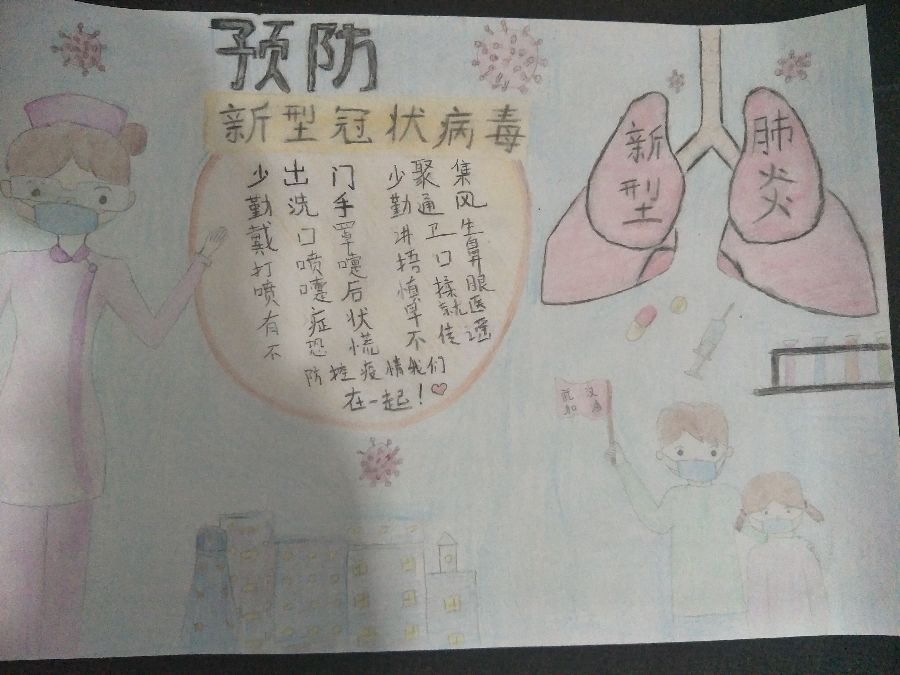 预防
新型冠状病毒
少出门 少聚集
勤洗手 勤通风
戴口罩 讲卫生
打喷嚏 捂口鼻
喷嚏后 慎揉眼
有症状 早就医
不恐慌 不传谣
防控疫情我们
在一起！♡
新型
肺炎
武汉
加油